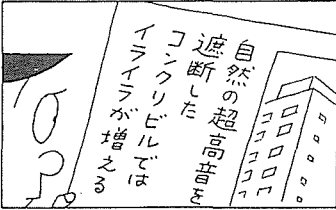 自然の超高音を
遮断した
コンクリビルでは
イライラが増える